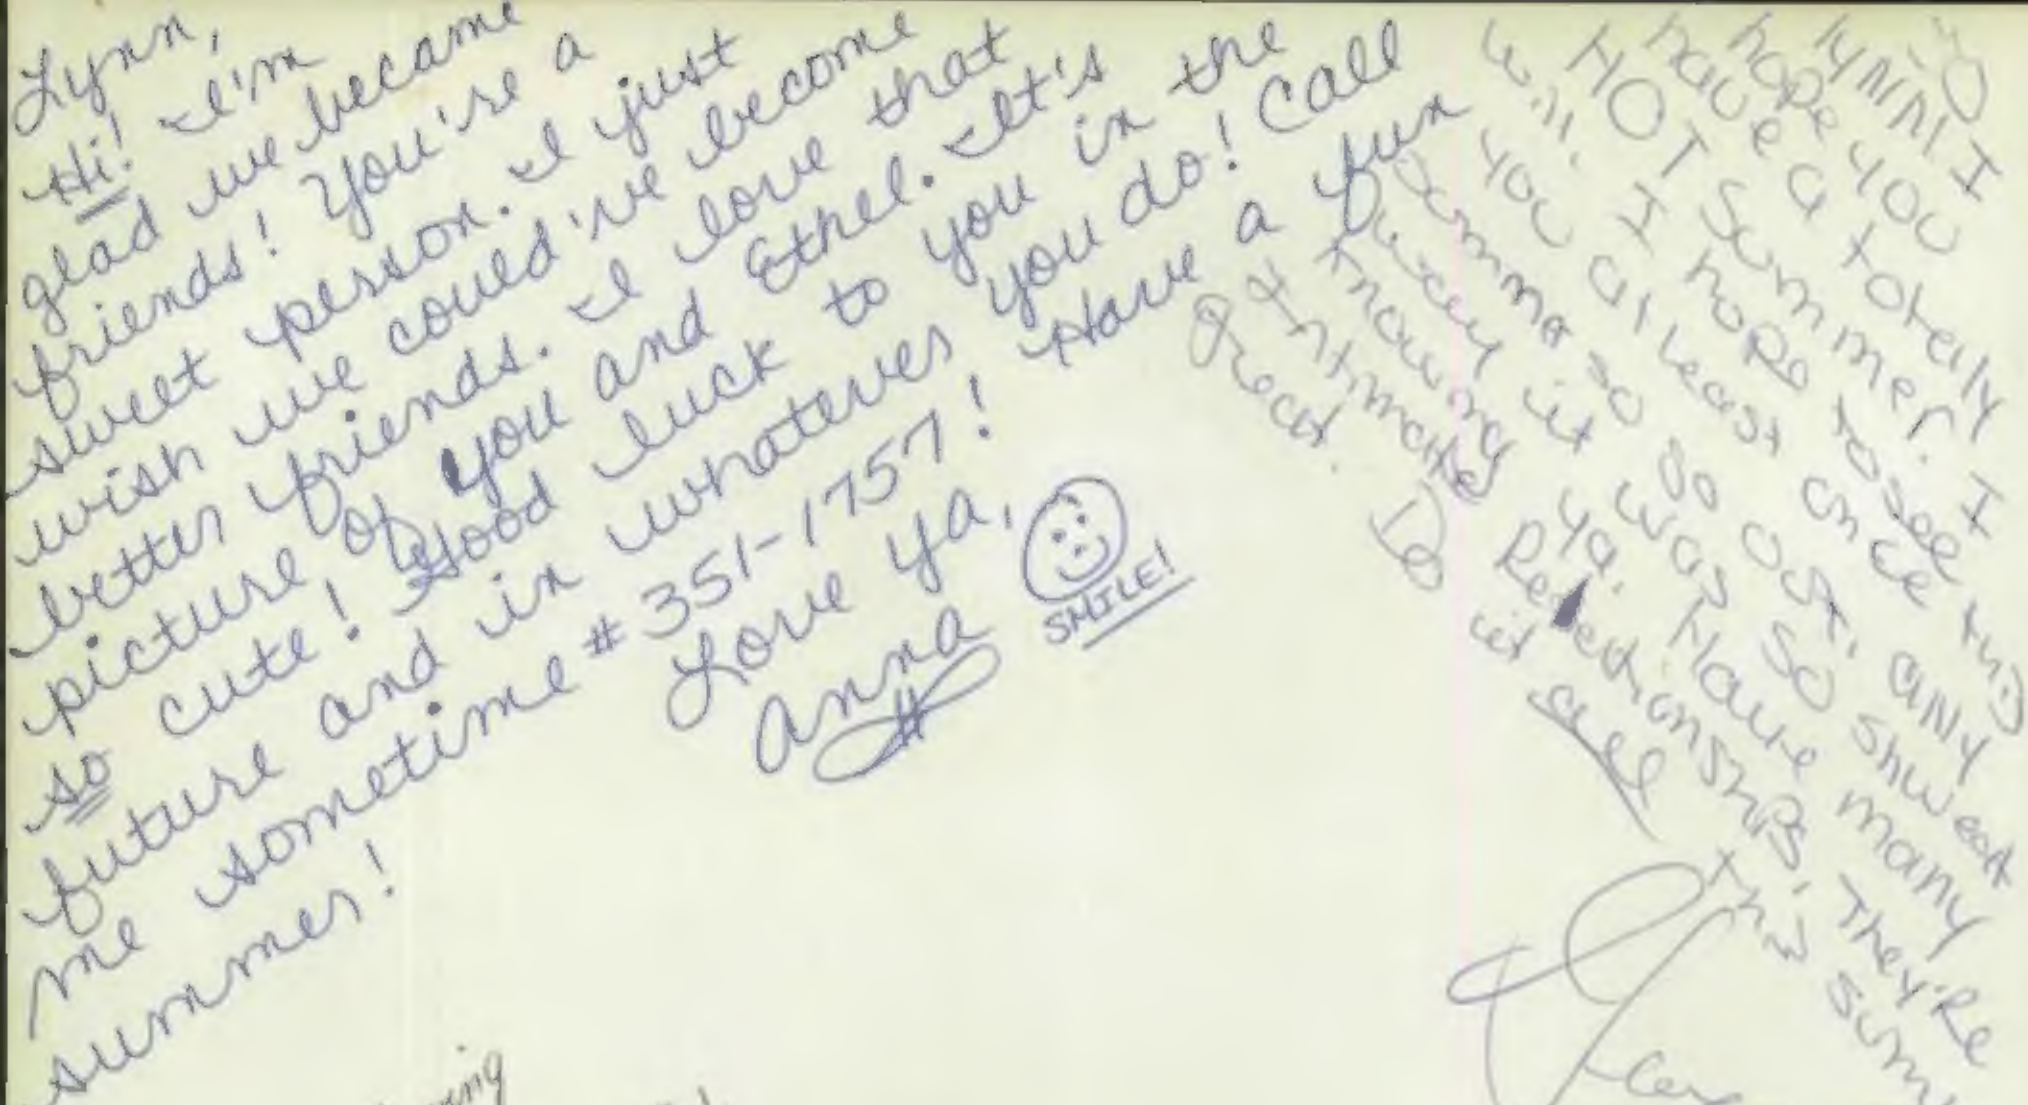 Lynn,
Hi! I'm
glad we became
friends! You're a
sweet person. I just
wish we could've become
better friends. I love that
picture of you and Ethel. It's
so cute! Good luck to you in the
future and in whatever you do! Call
me sometime # 351-1757! Have a fun
summer!
Love Ya,
Anna
SMILE!
YO
LYNN! I
hope you
have a totelly
HOT Summer. I
will. I hope to see
you at least once this
summa so go ost, any
way it was so shweat
knowing ya. Have many
Intimate Relationships, They're
great. Do it all this summ
ning